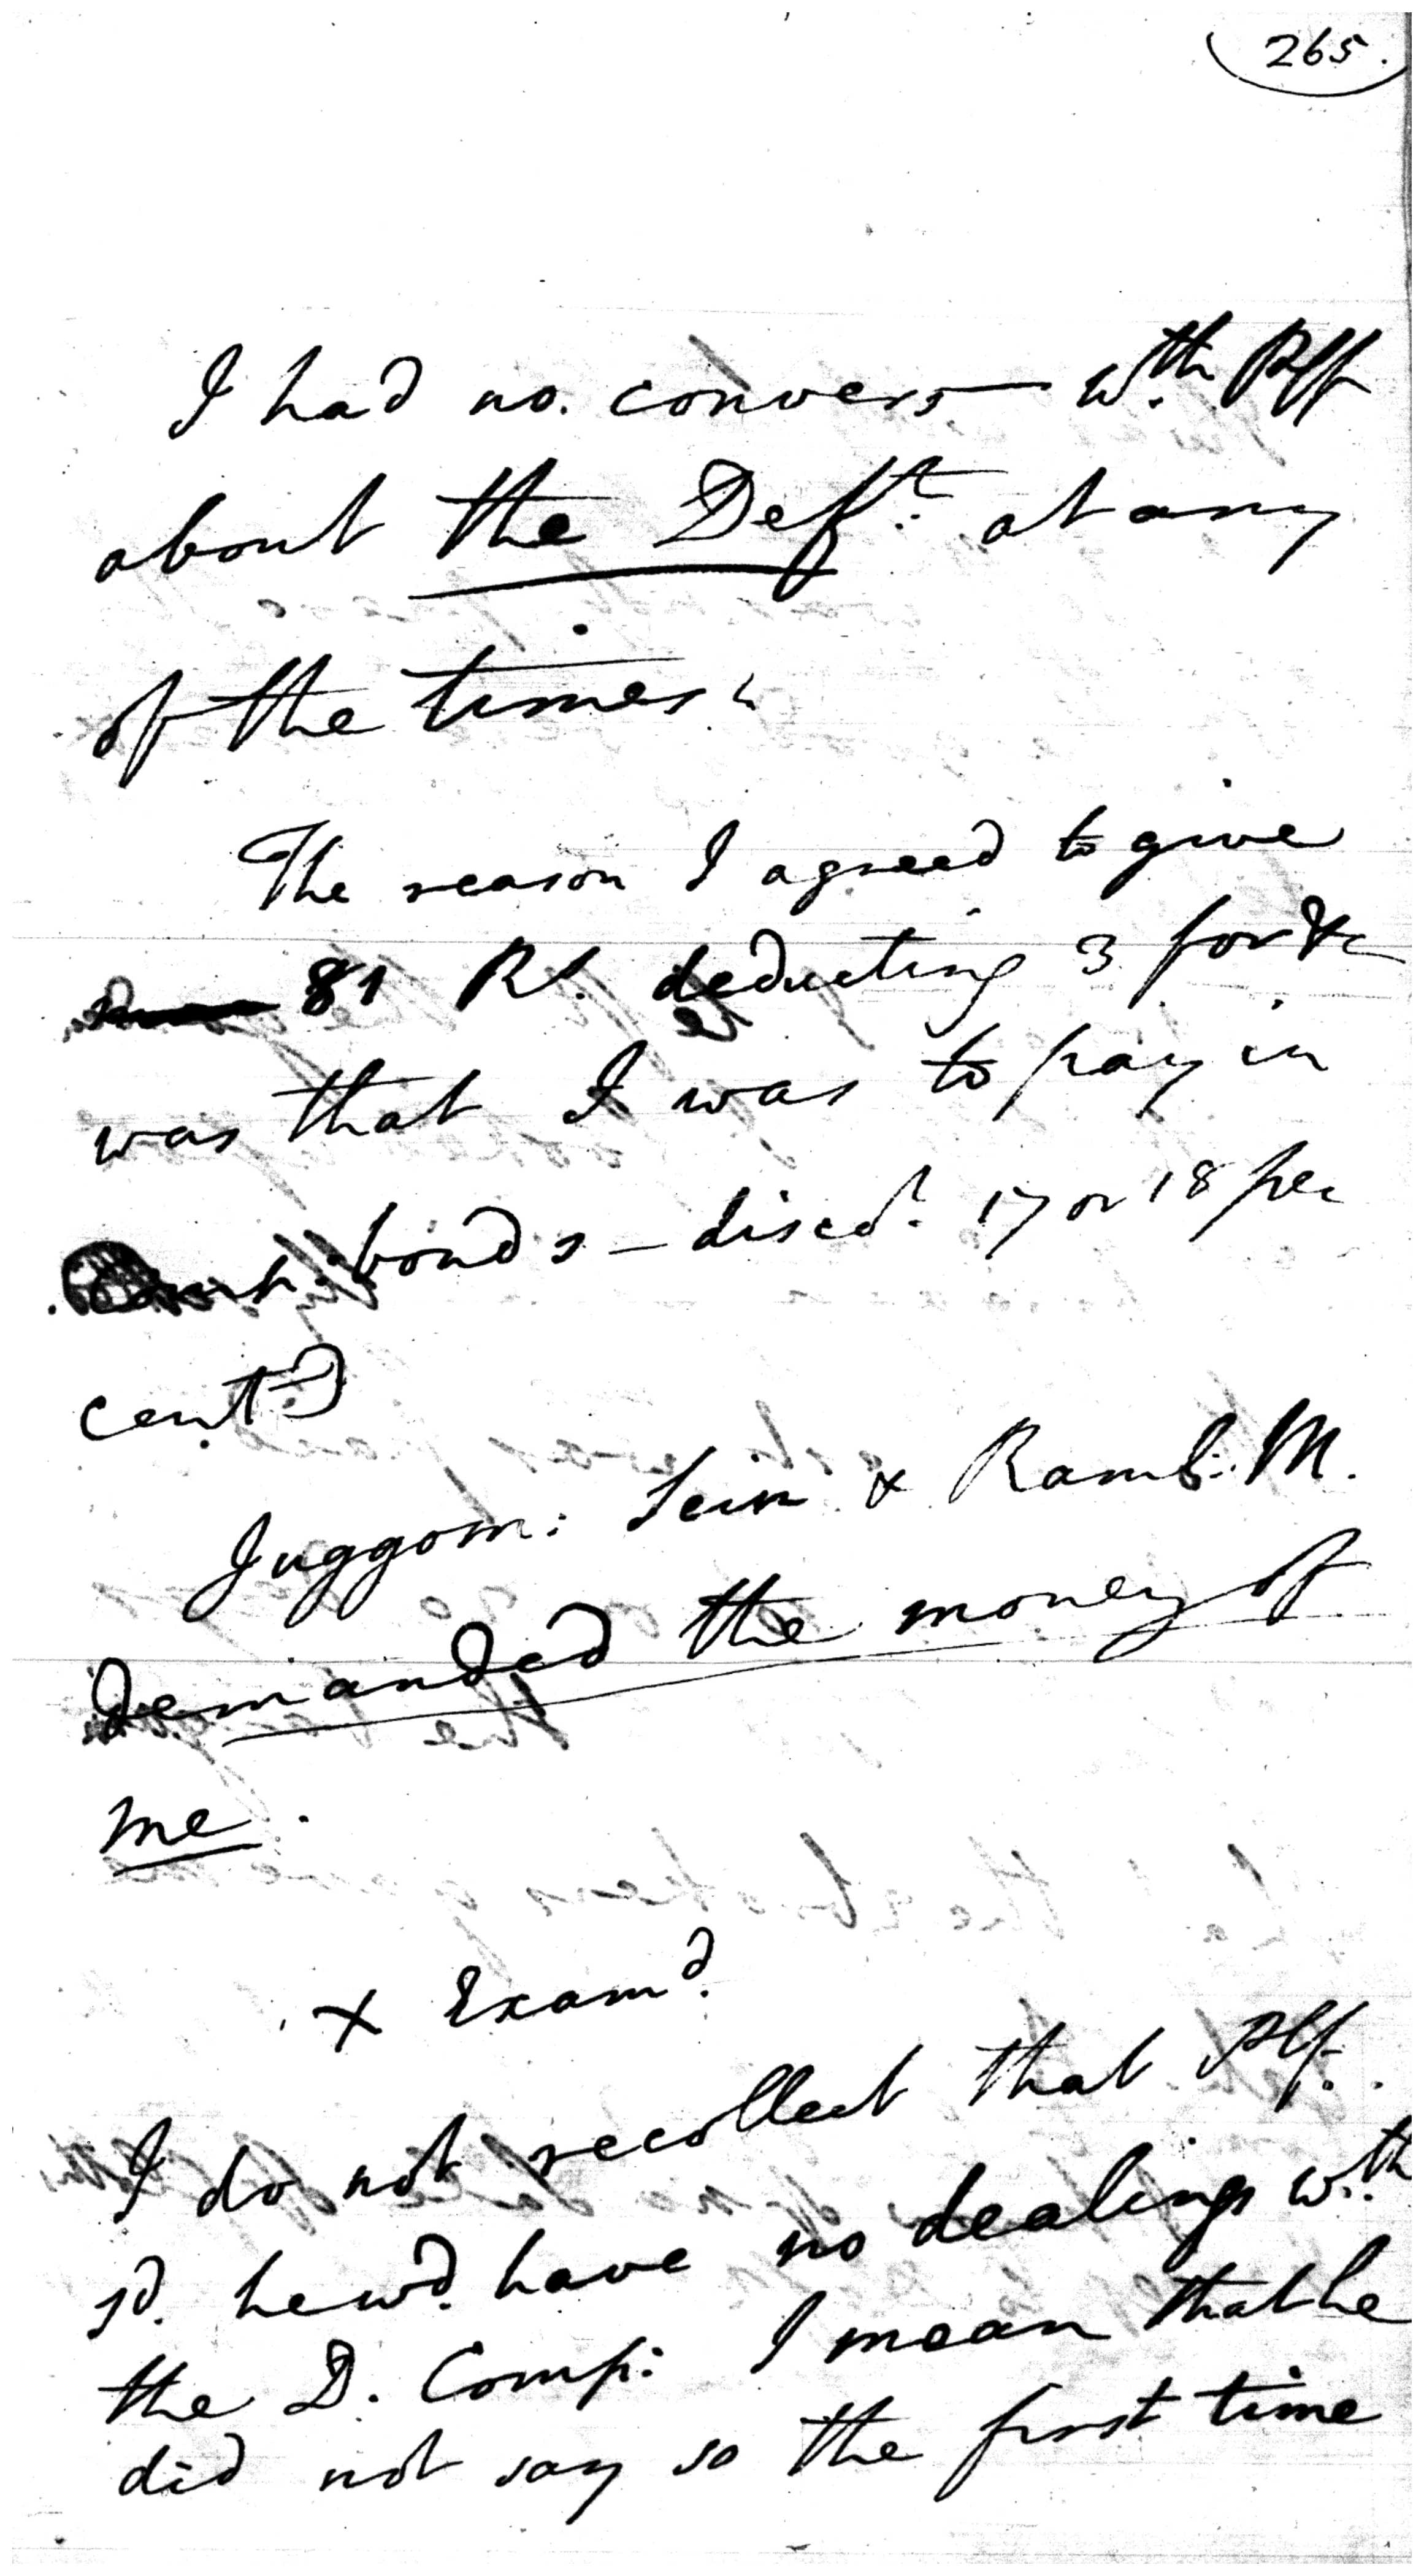 265.
I had no. convers— wth Plff
about the Deft. at any
of the times.
The reason I agreed to give
81 Rs. deducting 3 for &c
was that I was to pay in
Comp. bonds — discot. 17 or 18 per
cent.
Juggom: Sein & Ramb: M.
demanded the money of
me.
X Examd.
I do not recollect that Plf.
sd. he wd. have no dealings wth
the D. Comp: I mean that he
did not say so the first time